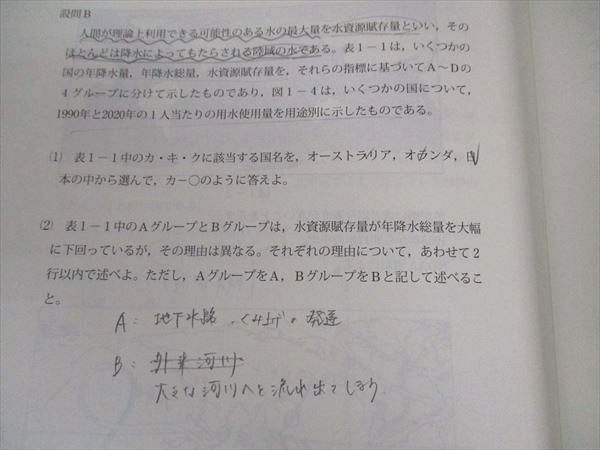 設問B
人間が理論上利用できる可能性のある水の最大量を水資源賦存量といい，その
ほとんどは降水によってもたらされる陸域の水である。表１−１は，いくつかの
国の年降水量，年降水総量，水資源賦存量を，それらの指標に基づいてＡ〜Ｄの
４グループに分けて示したものであり，図１−４は，いくつかの国について，
1990年と2020年の１人当たりの用水使用量を用途別に示したものである。
(1) 表１−１中のカ・キ・クに該当する国名を，オーストラリア，オランダ，日
本の中から選んで，カ−○のように答えよ。
(2) 表１−１中のＡグループとＢグループは，水資源賦存量が年降水総量を大幅
に下回っているが，その理由は異なる。それぞれの理由について，あわせて２
行以内で述べよ。ただし，ＡグループをＡ，ＢグループをＢと記して述べるこ
と。
A： 地下水路・くみ上げの発達
B： 外来河川
大きな河川へと流れ出てしまう